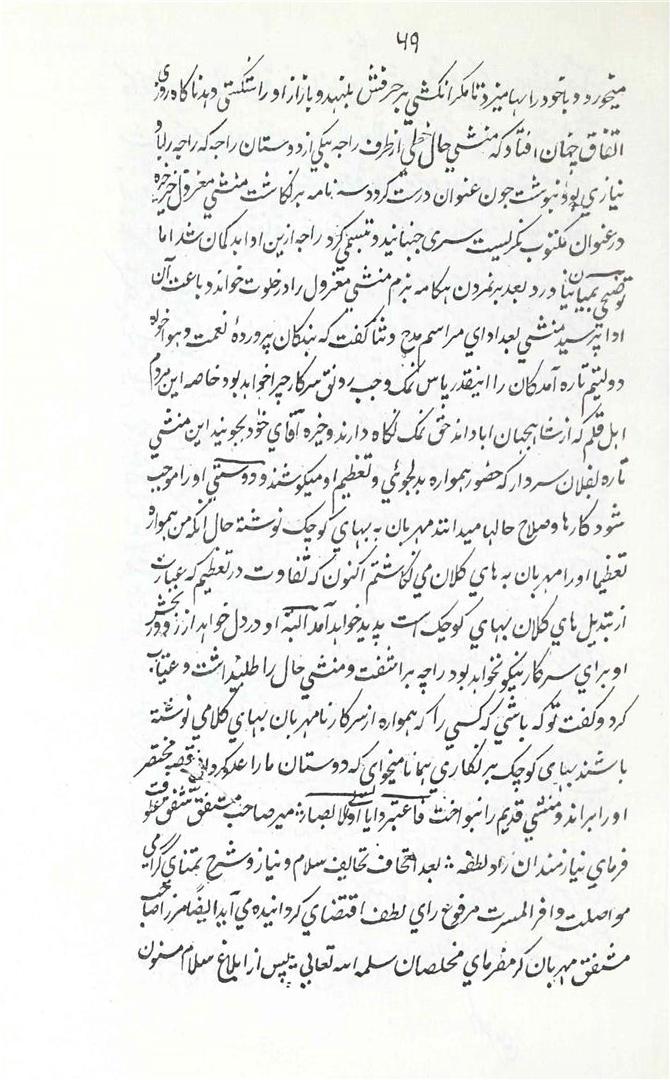 ۴۹
میخورد و باخود راهها میزد تا مگر انگشتی بر حرفش بنهد و بازار او را شکستی دهد ناگاه روزی
اتفاق چنان افتاد که منشی حال خطی از طرف راجه بیکی از دوستان راجه که راجه را با او
نیازی بود بنوشت چون عنوان درست کرد و سه نامه بر نگاشت منشی معزول خیره خیره
در عنوان مکتوب نگریست سری جنبانید و تبسمی کرد راجه ازین ادا بدگمان شد اما
توضیحی بمیان نیاورد بعد بر نمردن هنگامه بزم منشی معزول را در خلوت خواند و باعث آن
ادا پرسید منشی بعد ادای مراسم مدح و ثنا گفت که بندگان پرورده نعمت و هواخواه
دولتیم تازه آمدگان را اینقدر پاس نمک و حب رونق سرکار چرا خواهد بود خاصه این مردم
اهل قلم که از شاهجهان اباد اند حق نمک نگاه دارند و خیره آقای خود بجویند این منشی
تازه بفلان سردار که حضور همواره بدلجوئی و تعظیم او میکوشند و دوستی او را موجب
شود کارها و صلاح حالها میدانند مهربان به بهای کوچک نوشته حال آنکه من همواره
تعظیما او را مهربان به های کلان می نگاشتم اکنون که تفاوت در تعظیم که عبارت
از تبدیل های کلان بهای کوچک است پدید خواهد آمد البته او در دل خواهد آزرد و رنجش
او برای سرکار نیکو نخواهد بود راجه برآشفت و منشی حال را طلبید اشت و عتاب
کرد و گفت تو که باشی که کسی را که همواره از سرکار نامهربان بهای کلامی نوشته
باشند ببهای کوچک بر نگاری همانا میخواهی که دوستان ما را عدو گردانی قصه مختصر
او را براند و منشی قدیم را بنواخت فاعتبروا یا اولی الابصار میر صاحب مشفق شفقت و عطوفت
فرمای نیازمندان زاد لطفه بعد اتحاف تحایف سلام و نیاز و شرح تمنای گرامی
مواصلت وافر المسرت مرفوع رای لطف اقتضای گردانیده می آید ایضا مرزا صاحب
مشفق مهربان کرمفرمای مخلصان سلمه الله تعالی پس از ابلاغ سلام مسنون